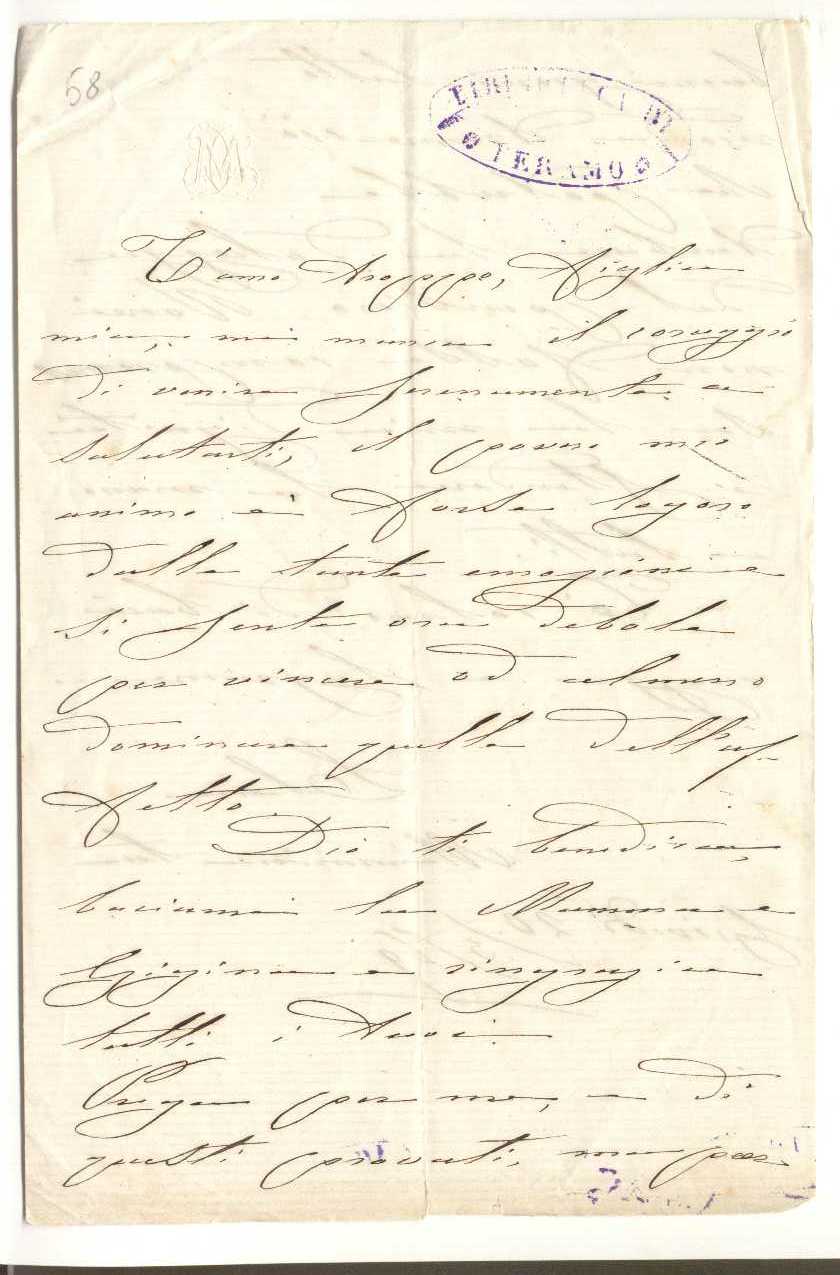 58
BIBLIOTECA DI
TERAMO
T'amo troppo, figlia
mia, mi manca il coraggio
di venire serenamente a
salutarti, il povero mio
animo è forse logoro
dalle tante emozioni e
si sente ora debole
per vincere od almeno
dominare quella dell'af-
fetto.
Dio ti benedica,
baciami la Mamma e
Gigina e ringrazia
tutti i tuoi.
Prega per me, e di
questi provati, ma per